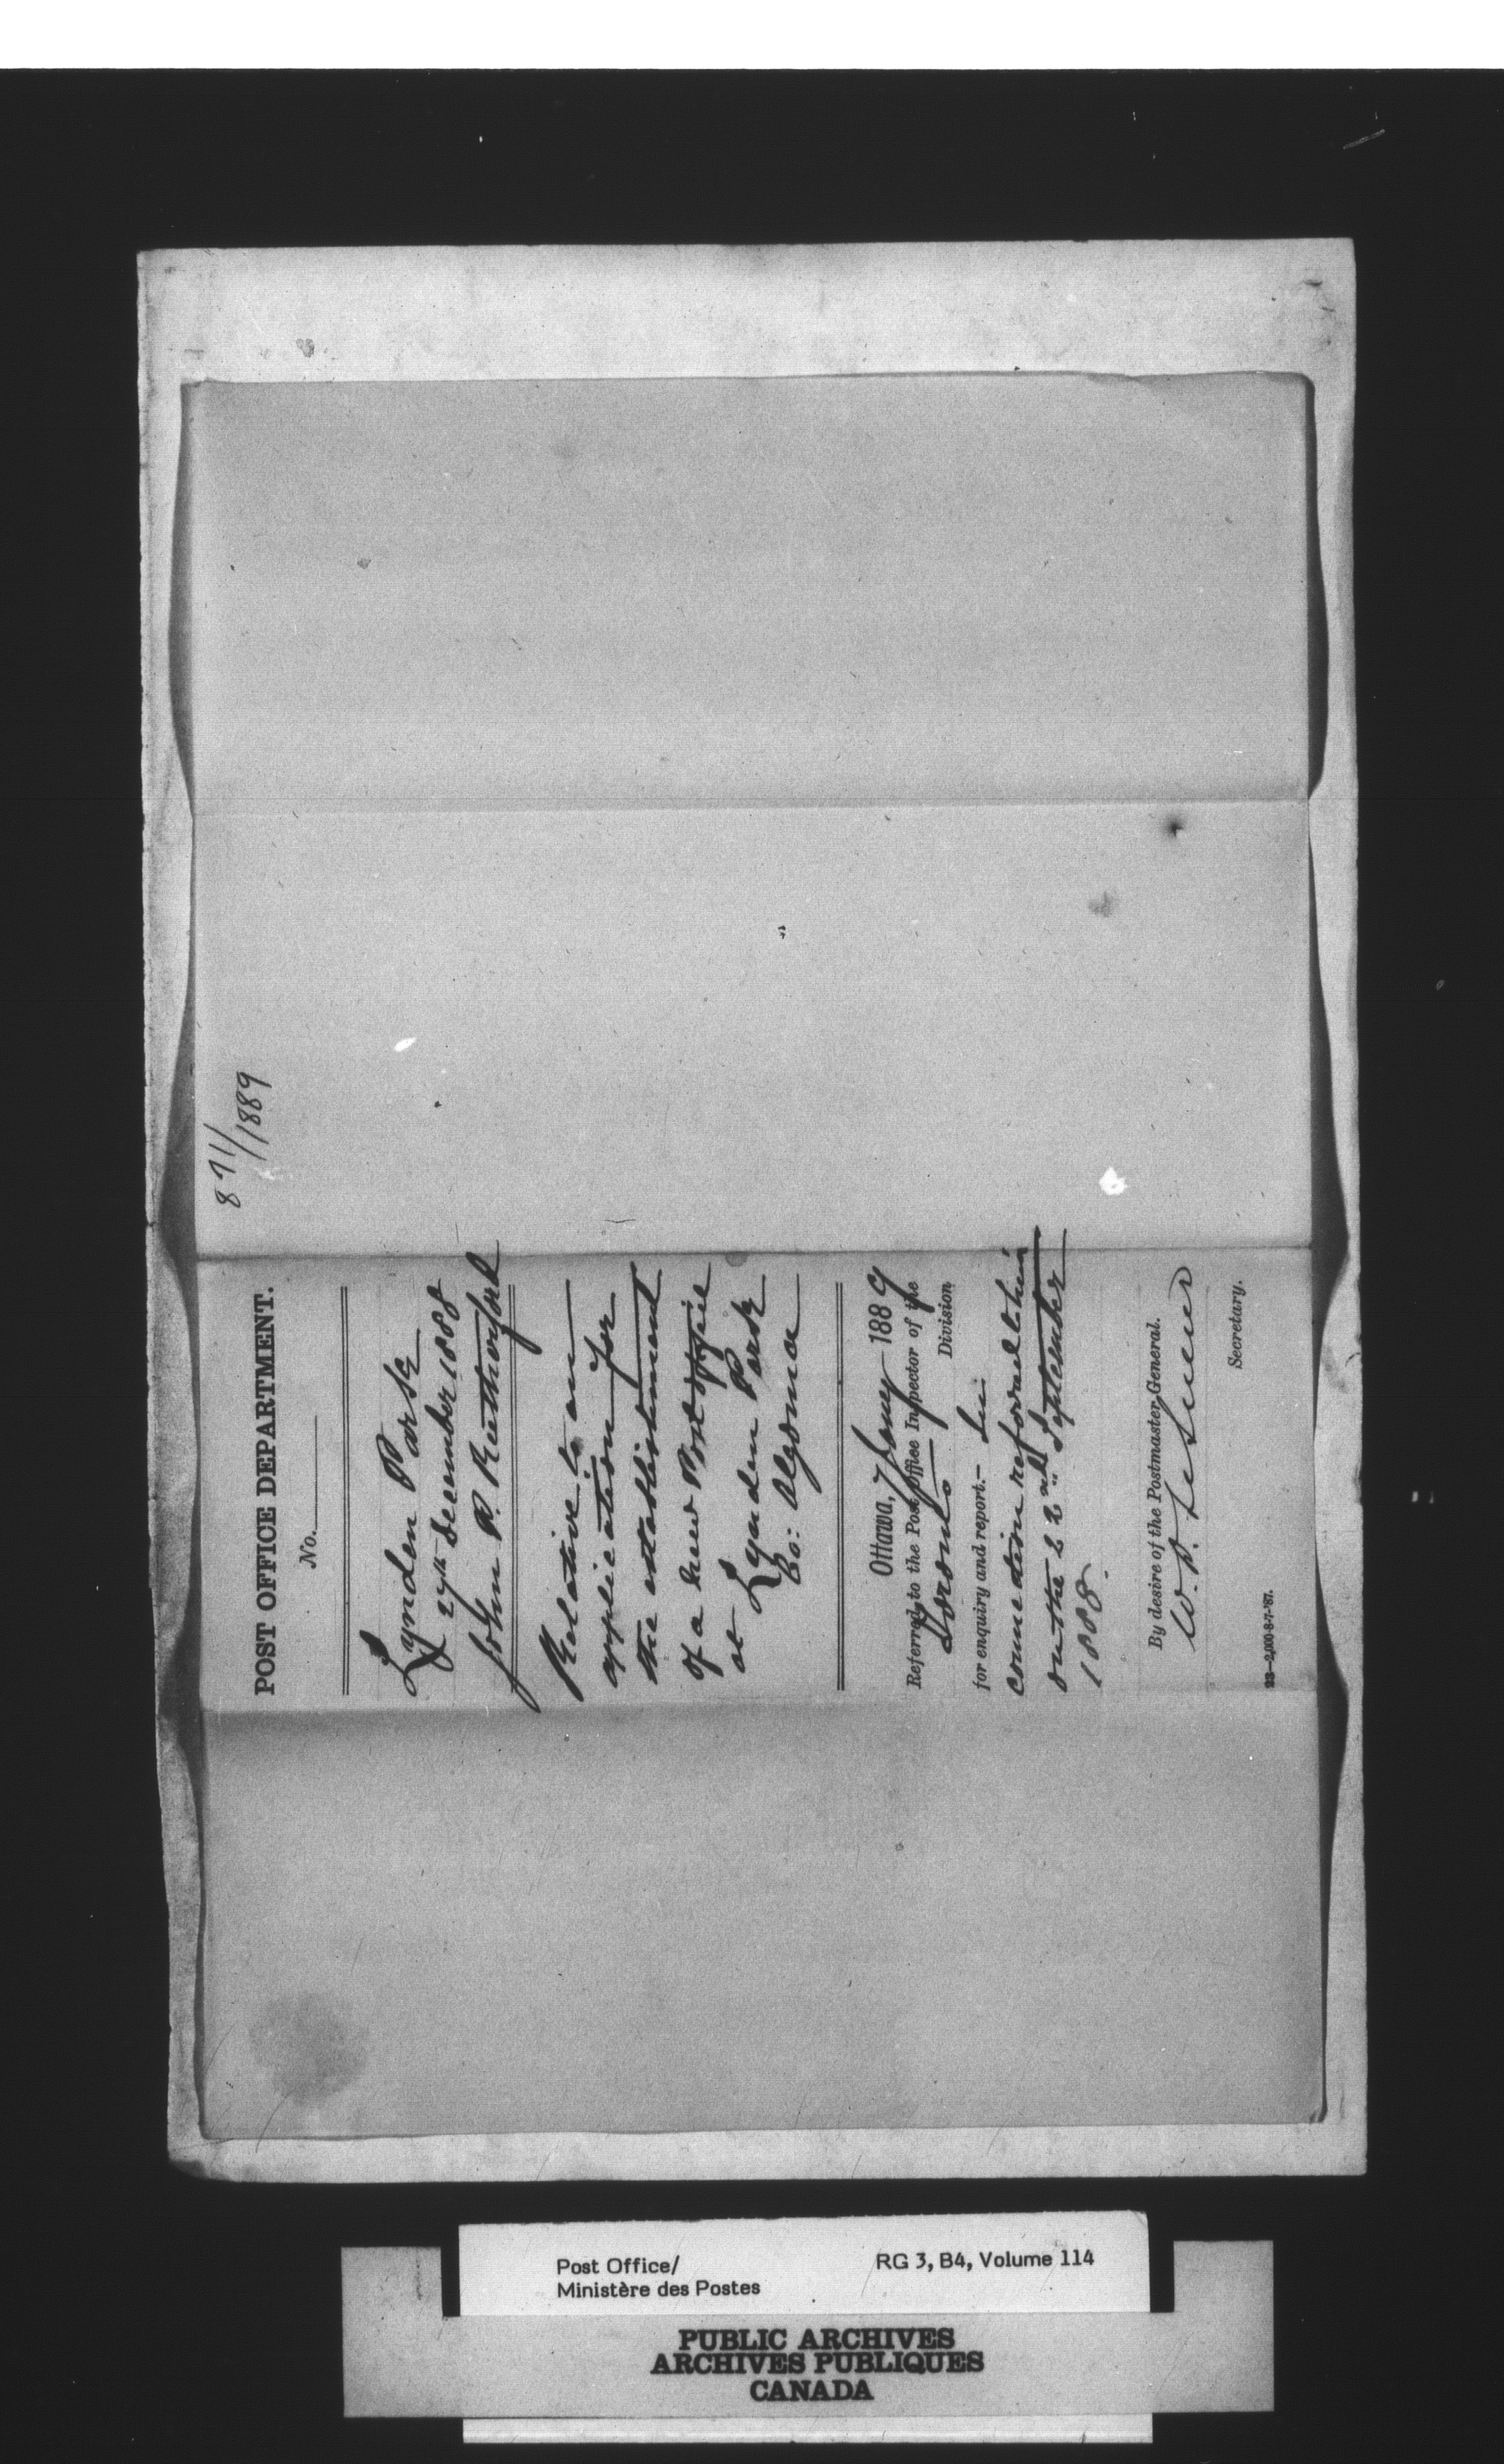 871/1889
POST OFFICE DEPARTMENT.
No.
Lynden Park
27th December 1888
John P. Rutherford
Relative to an
application for
the establishment
of a new Post Office
at
Lynden Park
Co: Algoma
Ottawa, 7 Jany 1889
Referred to the Post Office Inspector of the
Toronto Division
for enquiry and report.— In
connection referred to him
on the 22nd September
1888.
By desire of the Postmaster General.
W. P.
Secretary.
23—2,000-8-7-'87.
Post Office/
Ministère des Postes
RG 3, B4, Volume 114
PUBLIC ARCHIVES
ARCHIVES PUBLIQUES
CANADA